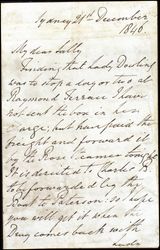 Sydney 21st December
1840
My dear Sally
Finding that Lady Dowling
has to stop a day or two at
Raymond Terrace I have
not sent the box in her
charge, but have paid the
freight and forward it
by the Rose steamer tonight
It is directed to Charles B
to be forwarded by the
Boat to Paterson: so I hope
you will get it when the
Dray comes back with